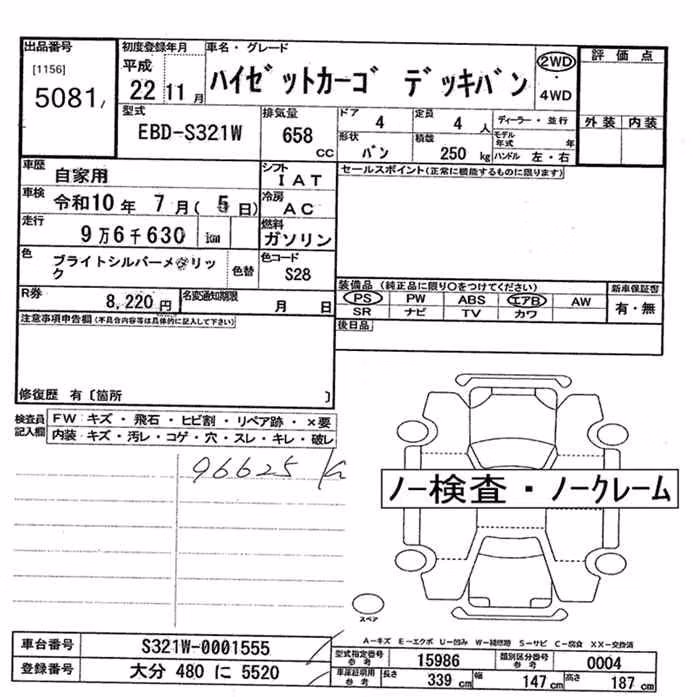 出品番号
[1156]
5081
初度登録年月
平成
22 11 月
車名・グレード
ハイゼットカーゴ デッキバン
2WD
・
4WD
評価点
外装 内装
型式
EBD-S321W
排気量
658
CC
ドア
4
定員
4 人
ディーラー・並行
形状
バン
積載
250 kg
モデル年式 年
ハンドル 左・右
車歴
自家用
シフト
IAT
セールスポイント(正常に機能するものに限ります)
車検
令和10 年 7 月( 5 日)
冷房
AC
走行
9万6千630 km
燃料
ガソリン
色
ブライトシルバーメタリック
色替
色コード
S28
装備品(純正品に限り〇をつけてください)
新車保証書
PS PW ABS エアB AW
有・無
SR ナビ TV カワ
R券
8,220円
名変通知期限
月 日
後日品
注意事項申告欄(不具合内容等は具体的に記入して下さい)
修復歴 有〔箇所 〕
検査員記入欄
FW:キズ・飛石・ヒビ割・リペア跡・×要
内装:キズ・汚レ・コゲ・穴・スレ・キレ・破レ
96625
ノー検査・ノークレーム
スペア
A-キズ E-エクボ U-凹み W-補修跡 S-サビ C-腐食 XX-交換済
車台番号
S321W-0001555
型式指定番号
参考
15986
類別区分番号
参考
0004
登録番号
大分 480 に 5520
車庫証明用
参考
長さ
339 cm
幅
147 cm
高さ
187 cm